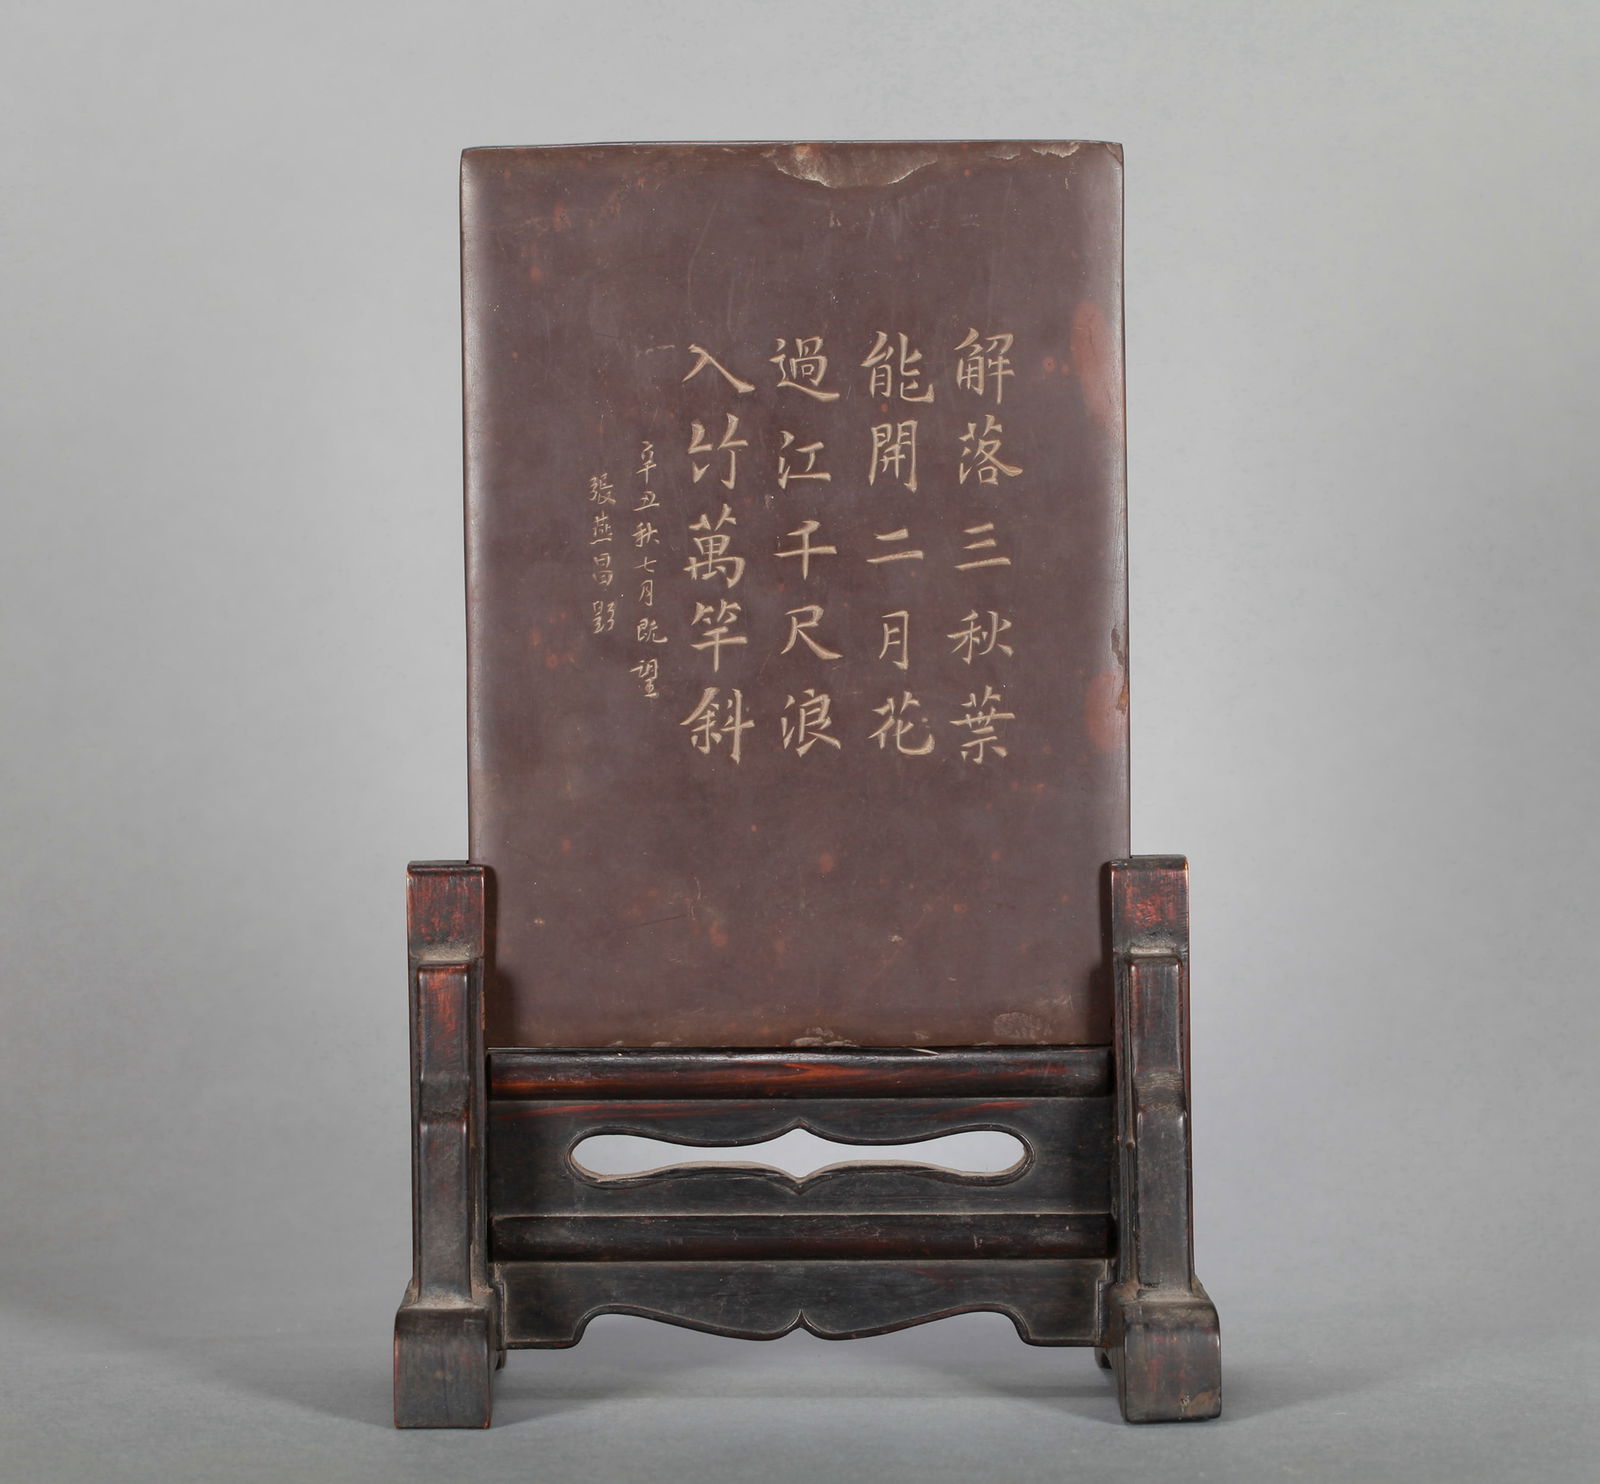 解落三秋葉
能開二月花
過江千尺浪
入竹萬竿斜
辛丑秋七月既望
張燕昌